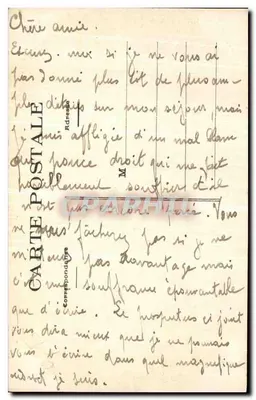 Chère amie.
Excusez-moi si je ne vous ai
pas donné plus tôt de plus am-
ples détails sur mon séjour, mais
je suis affligée d'un mal dans
pouce droit qui me fait
souffrir et il
n'est pas encore Vous
ne vous fâcherez pas si je ne
pas davantage mais
c'est une souffrance épouvantable
que d'écrire. Le prospectus ci joint
vous dira mieux que je ne pourrais
vous l'écrire dans quel magnifique
endroit je suis.
CARTE POSTALE
Correspondance
Adresse
M